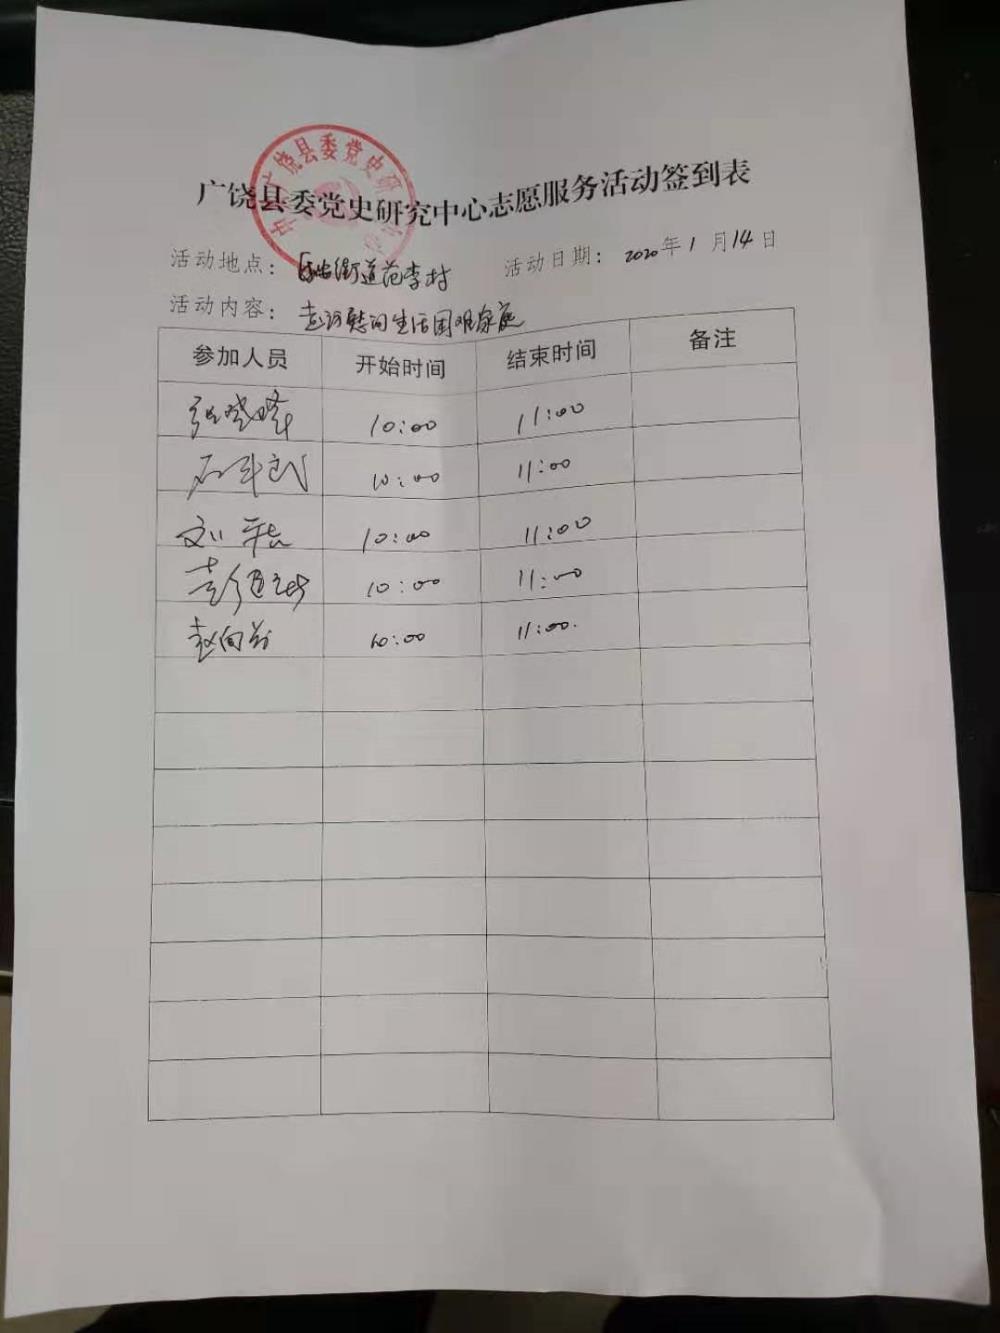 广饶县委党史研究中心志愿服务活动签到表
活动地点： 街道范李村 活动日期： 2020年1月14日
活动内容： 走访慰问生活困难家庭
参加人员 开始时间 结束时间 备注
张晓峰 10:00 11:00
10:00 11:00
刘 10:00 11:00
10:00 11:00
赵向前 10:00 11:00.